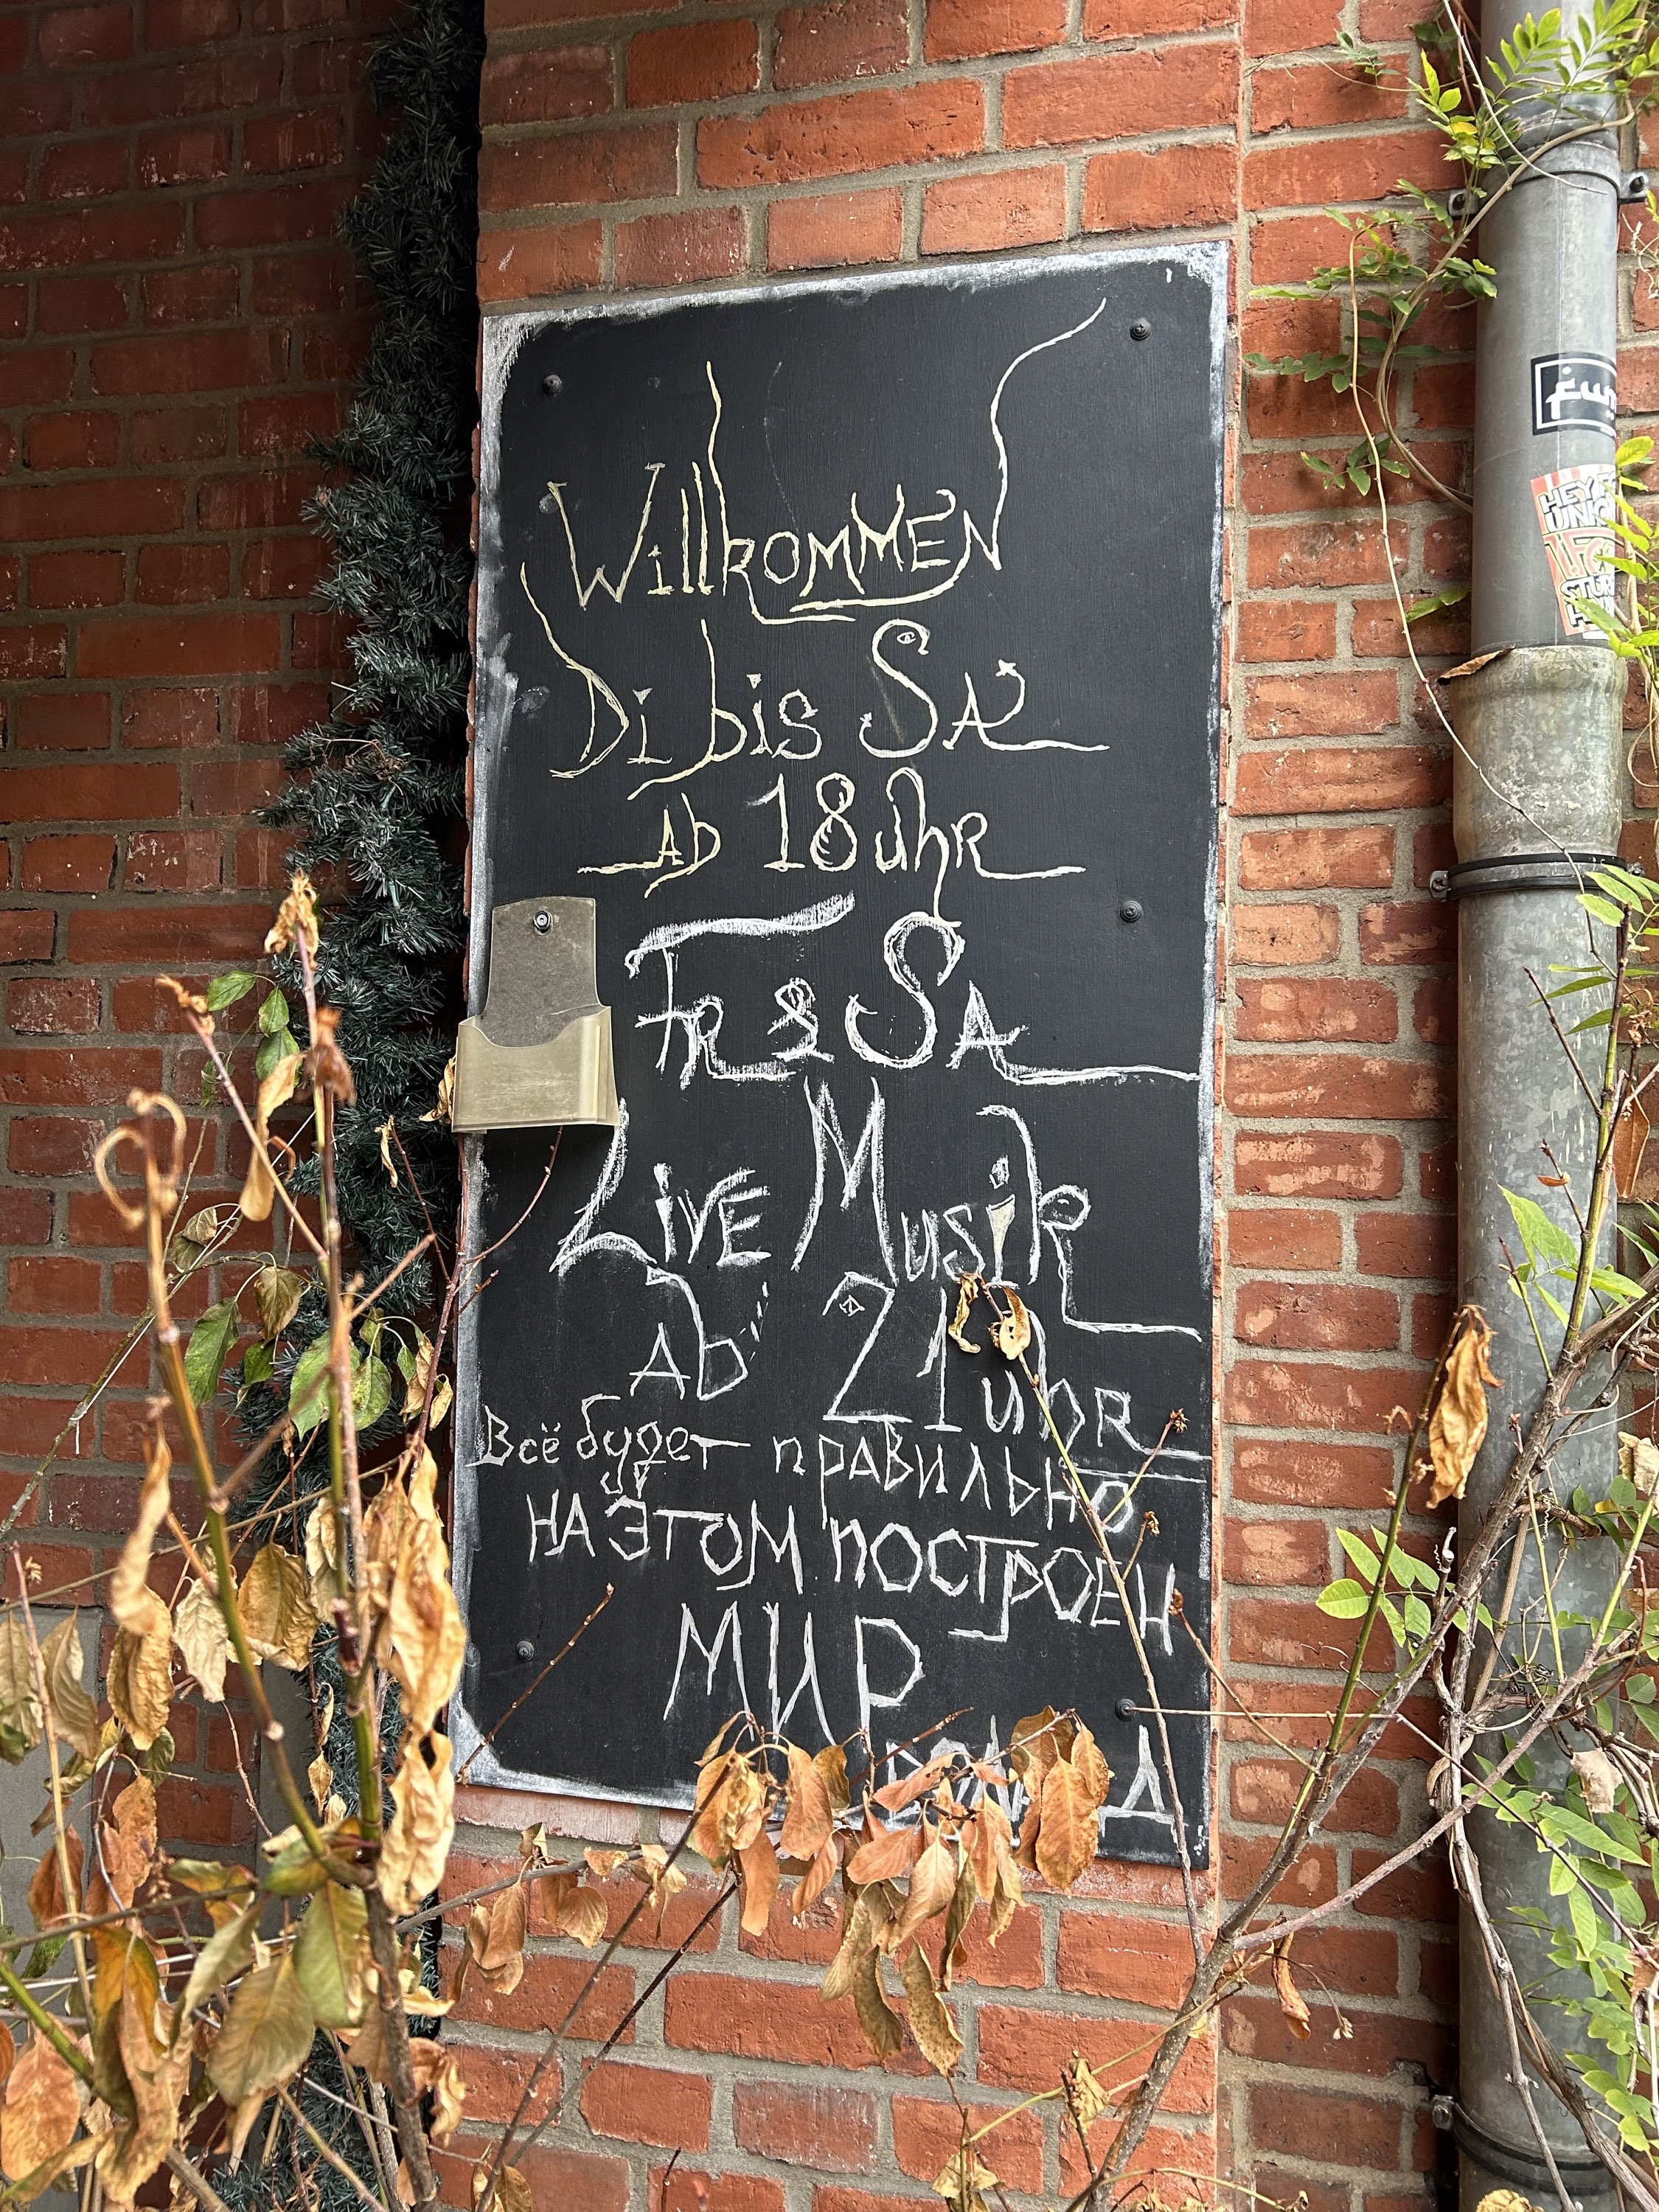 WillkommEN
Di bis SA
Ab 18 uhr
FR & SA
LivE Musik
Ab 21 uhR
Всё будет правильно
НА ЭТОМ ПОСТРОЕН
МИР
HEY